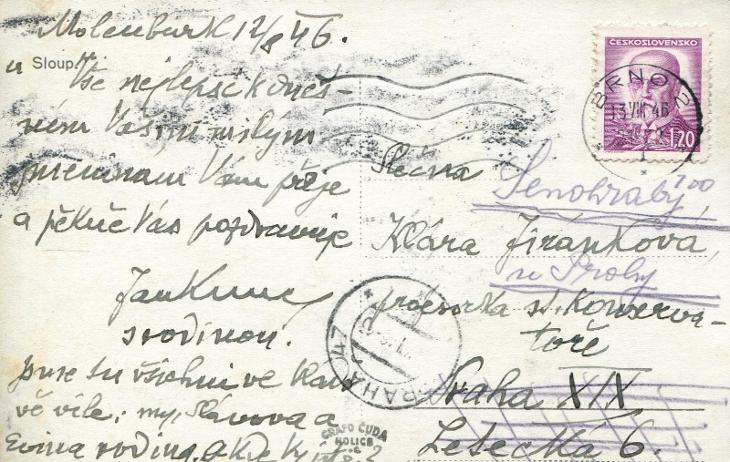 Molenburk 12/8 46.
u Sloup.
Vše nejlepší k dneš-
ním Vašim milým
jmeninám Vám přeje
a pěkně Vás pozdravuje
Jan Kunc
s rodinou.
Jsme tu všichni ve
vě vile: my, Slávova a
Evina rodina, a kde Vy jste?
ČESKOSLOVENSKO
1,20
BRNO 2
13 VIII 46
Slečna
Klára Jiránková,
profesorka st. Konserva-
toře
Praha XIX
Letecká 6.
Senohraby 700
u Prahy
PRAHA 047
GRAFO ČUDA
HOLICE